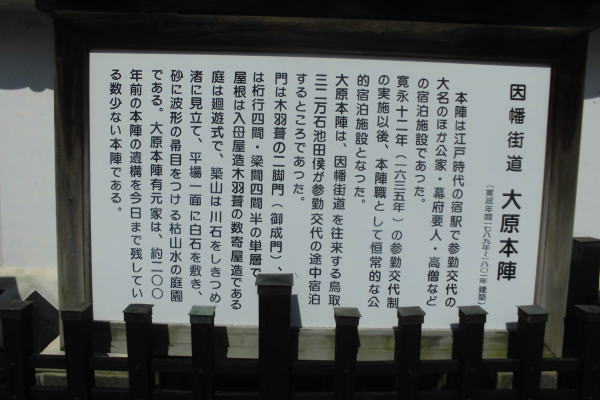 因幡街道 大原本陣
(寛政年間一七八九年~一八〇一年建築)
本陣は江戸時代の宿駅で参勤交代の
大名のほか公家・幕府要人・高僧など
の宿泊施設であった。
寛永十二年(一六三五年)の参勤交代制
の実施以後、本陣職として恒常的な公
的宿泊施設となった。
大原本陣は、因幡街道を往来する鳥取
三二万石池田侯が参勤交代の途中宿泊
するところであった。
門は木羽葺の二脚門(御成門)、
は桁行四間・梁間四間半の単層で
屋根は入母屋造木羽葺の数寄屋造である
庭は廻遊式で、築山は川石をしきつめ
渚に見立て、平場一面に白石を敷き、
砂に波形の帚目をつける枯山水の庭園
である。大原本陣有元家は、約二〇〇
年前の本陣の遺構を今日まで残してい
る数少ない本陣である。